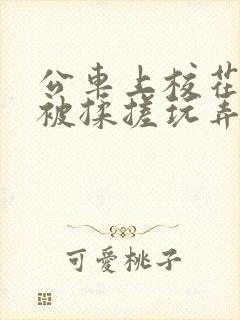 公車上校花
被揉搓玩弄
可愛桃子